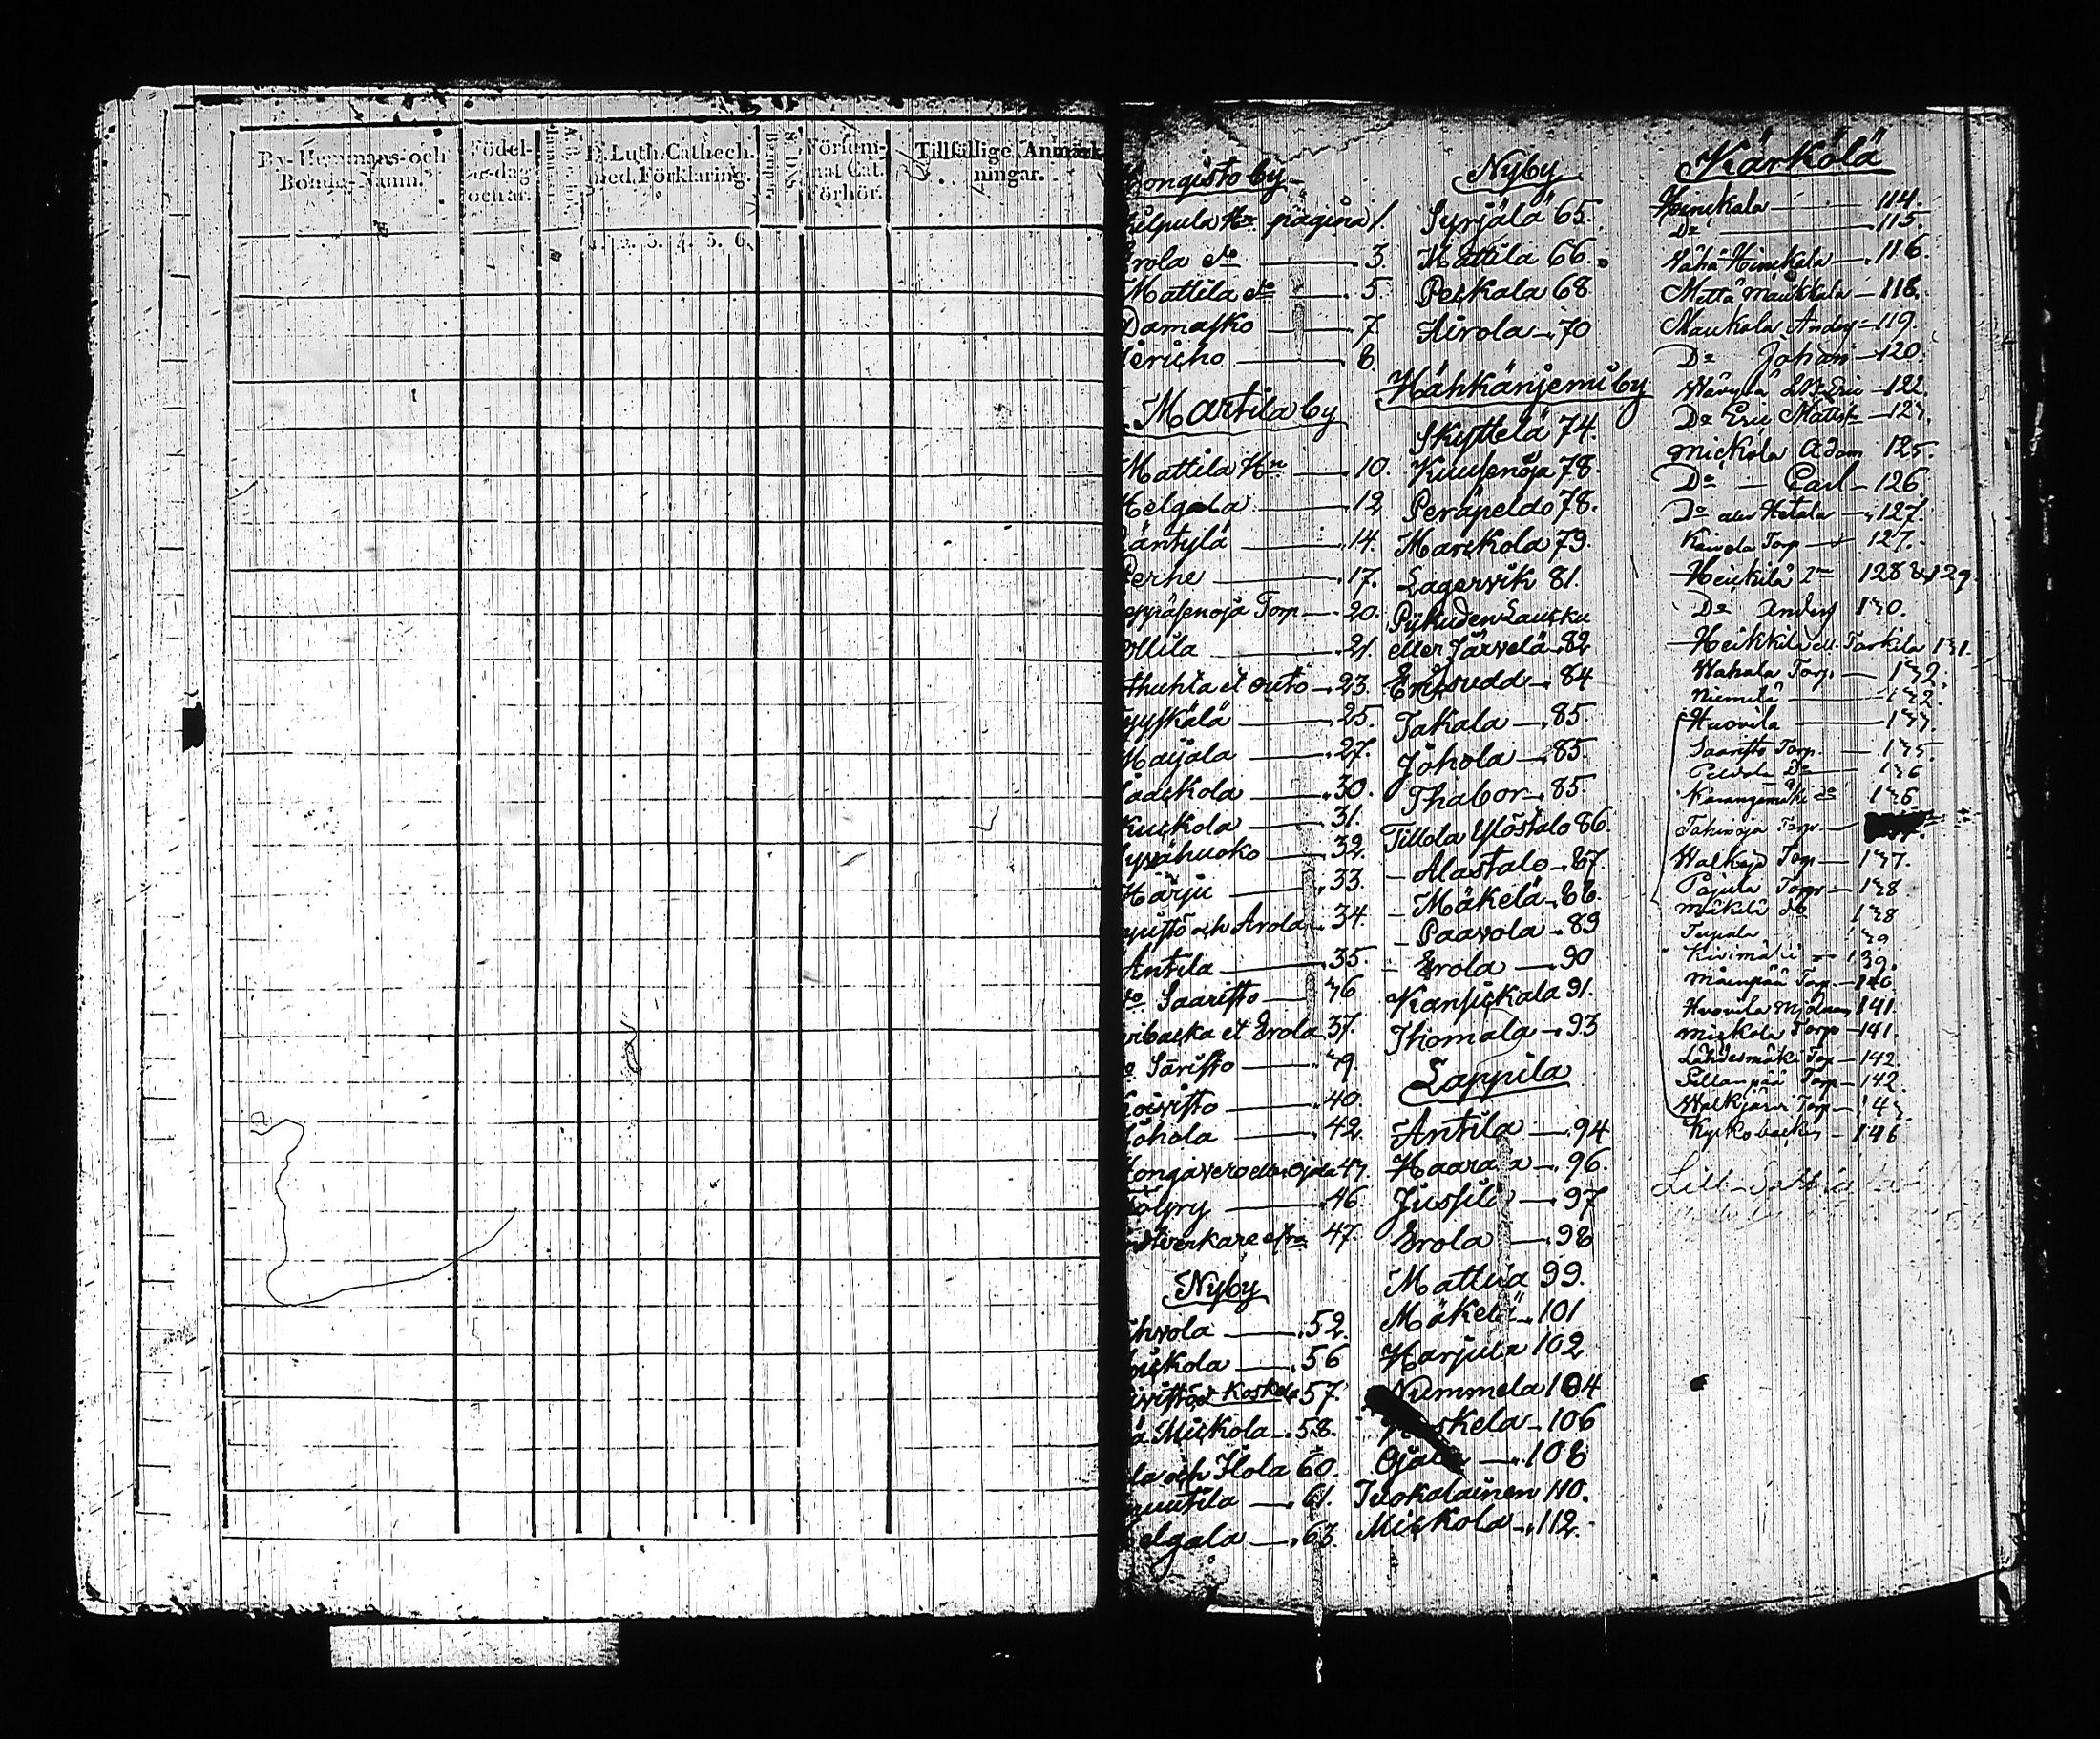 By- Hemmans- och
Bonde-Namn.
Födel-
se-dag
och år.
D. Luth. Cathech.
med. Förklaring.
1. 2. 3. 4. 5. 6.
Försum-
mat Cat.
Förhör.
Tillfällige Anmärk-
ningar.
ongisto by
ilpula Hn pagina 1.
rola do 3.
Mattila do 5.
Damasko 7.
Jericho 8.
Martila by
Mattila Hn 10.
Helgala 12
äntylä 14.
Perhe 17.
eppäsenoja Torp 20.
ollila 21.
thuhta et outo 23.
yyskälä 25.
Maijala 27.
aackola 30.
Kuckola 31.
yvähuoko 32.
Harju 33.
uisto och Arola 34.
Antila 35.
do Saaristo 36
ribacka et Erola 37.
o Säristo 39.
oivisto 40.
Johola 42.
ongavero eller Ojala 43.
öljry 46.
ndtverkare efra 47.
Nyby
ihvola 52.
ickola 56
ivisto och Koskela 57.
ä Mickola 58.
la och Ilola 60.
nuutila 61.
elgala 63.
Nyby
Syrjälä 65.
Mattila 66.
Peckala 68
Airola 70
Hähkänjemi by
Skyttelä 74.
Kuusenoja 78.
Peräpeldo 78.
Marckola 79.
Lagervik 81.
Pyhuden Laucku
eller Järvelä 82
Eriksudd 84
Takala 85.
Johola 85.
Thabor 85.
Tillola Ylöstalo 86.
Alastalo 87.
Mäkelä 88.
Paavola 89
Erola 90
Kansickala 91.
Thomala 93
Lappila
Antila 94
Haarala 96.
Jussila 97
Erola 98
Mattila 99.
Mäkelä 101
Harjula 102
Nummela 104
Koskela 106
Ojala 108
Tuokalainen 110.
Mickola 112.
Kärkölä
Hinckala 114.
Do 115.
Vähä Hinckala 116.
Mettä Maukkala 118.
Maukala Anders 119.
Do Johan 120.
Wäryla Eric 122.
Do Eric Matts 123.
Mickola Adam 125.
Do Carl 126
Do eller Hetala 127.
Kaivola Torp 127.
Heickilä 128 & 129.
Do Anders 130.
Heikkilä ell. Taskila 131.
Wahala Torp. 132.
Niemilä 132.
Huovila 133.
Saaristo Torp. 135
Peldola Do 136
Karangemäki do 136
Tahinoja Torp
Walkeja Torp 137.
Pajula Torp 138
Mäkelä do 138
Terpala 139
Kivimäki 139.
Mäenpää Torp 140.
Huovila Mölnare 141.
Mickola Torp 141.
Lähdesmäki Torp 142.
Sillanpää Torp 142.
Walkjärvi Torp 143.
Kyrkobacken 146
Lill-Sattiala